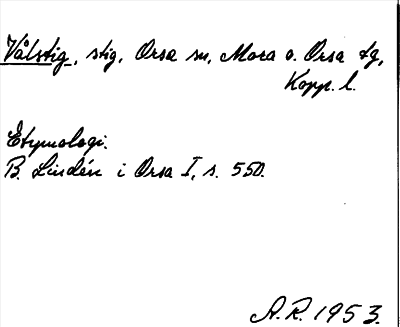 Vålstig, stig, Orsa sn, Mora o. Orsa tg,
Kopp. l.
Etymologi.
B. Lindén i Orsa I, s. 550.
A.R. 1953.